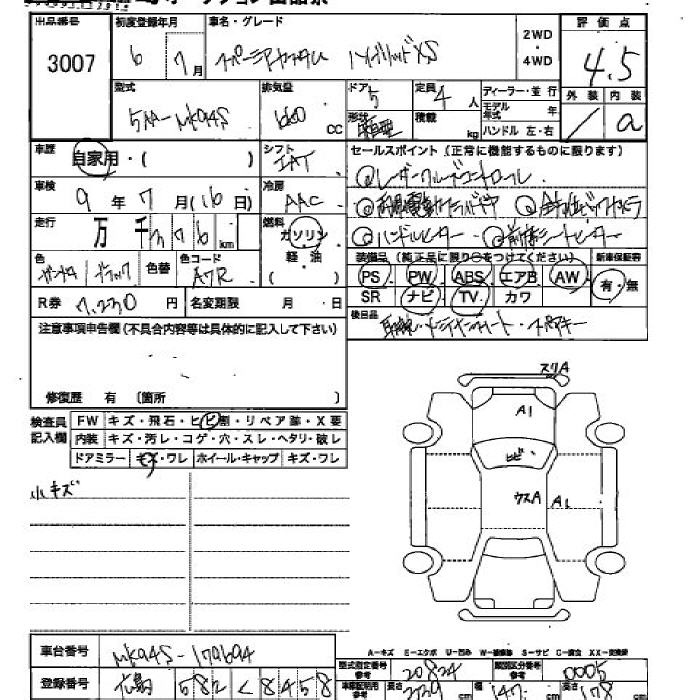 出品番号 初度登録年月 車名・グレード 2WD・4WD 評価点
3007 6 7月 スペーシアカスタム ハイブリッドXS 4.5
型式 排気量 ドア 定員 ディーラー・並行 外装 内装
5AA-MK94S 660 CC 5 4人 モデル年式 年 / a
形状 積載 kg ハンドル 左・右
車歴 自家用・( ) シフト セールスポイント(正常に機能するものに限ります)
IAT
車検 9年7月(16日) 冷房 AAC
走行 万千 km 燃料 ガソリン
軽・油
( )
ハンドルヒーター
色 色替 色コード 装備品(純正品に限り○をつけてください) 新車保証書
ブラック A7R PS PW ABS エアB AW 有・無
SR ナビ TV カワ
R券 7,230円 名変期限 月・日
後日品
注意事項申告欄(不具合内容等は具体的に記入して下さい)
修復歴 有 [箇所 ]
検査員記入欄
FW キズ・飛石・ヒビ割・リペア跡・X要
内装 キズ・汚レ・コゲ・穴・スレ・ヘタリ・破レ
ドアミラー キズ・ワレ ホイール・キャップ キズ・フレ
小キズ
スリA
A1
ヒビ
ウスA A1
A-キズ E-エクボ U-凹み W-補修跡 S-サビ C-腐食 XX-交換済
車台番号 MK94S-179694
登録番号 広島 582 く 8458
型式指定番号 20824 類別区分番号 0005
長さ cm 幅 147 cm 178 cm